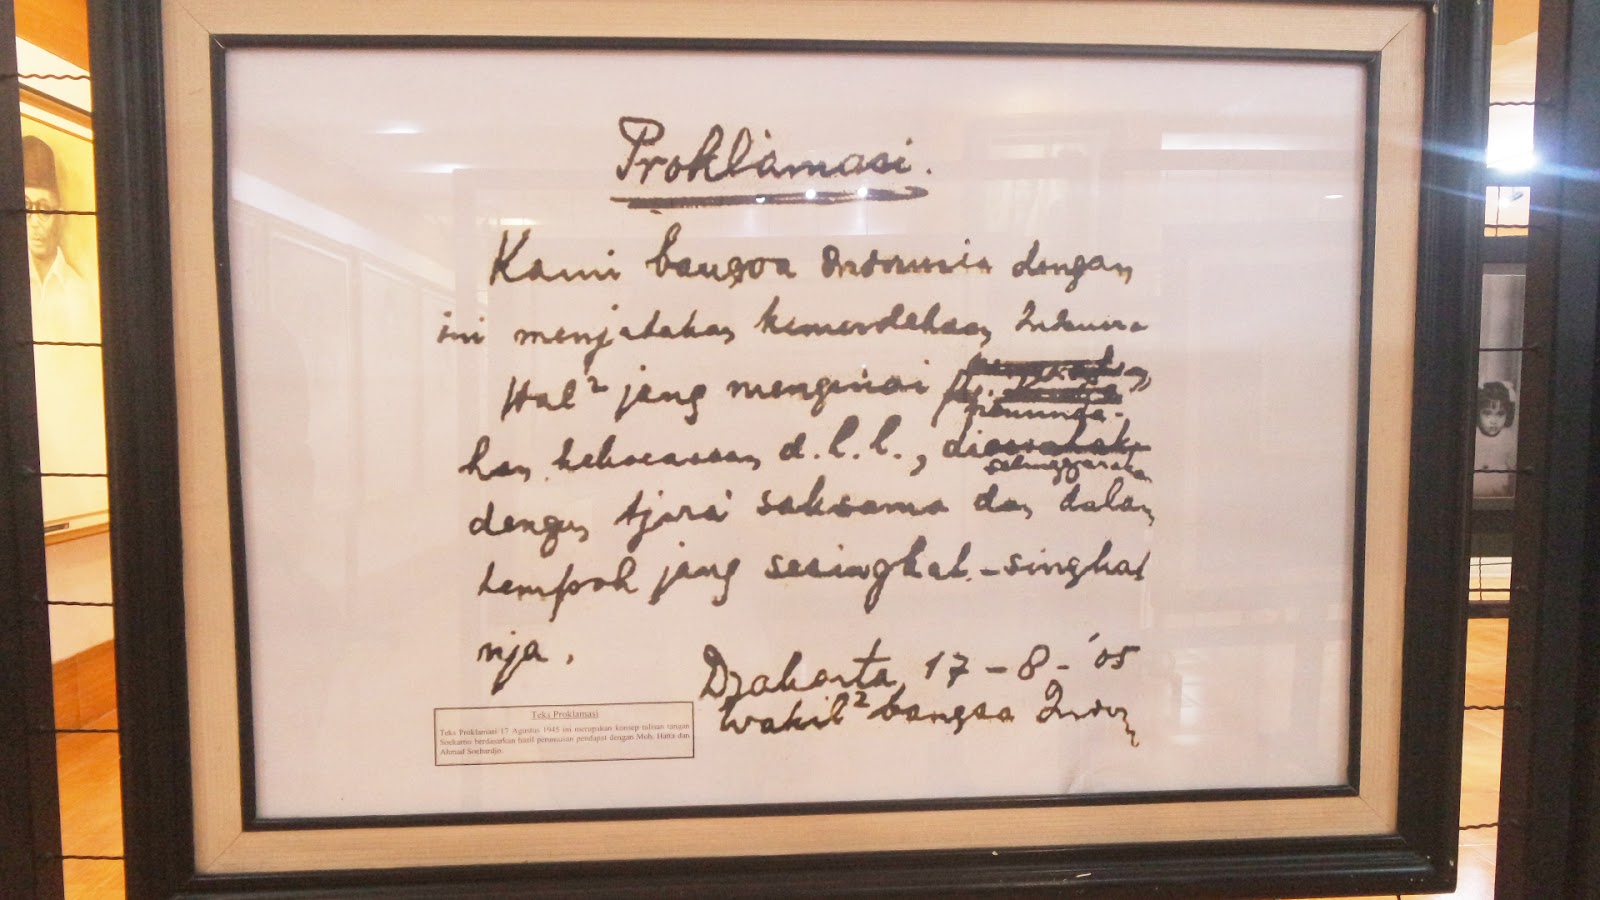 Proklamasi.
Kami bangsa Indonesia dengan
ini menjatakan kemerdekaan Indonesia
Hal² jang mengenai
pemindahan kekoeasaan d.l.l., diselenggarakan
dengan tjara saksama dan dalam
tempoh jang sesingkat-singkat
nja.
Djakarta, 17-8-'05
Wakil² bangsa Indon
Teks Proklamasi
Teks Proklamasi 17 Agustus 1945 ini merupakan konsep tulisan tangan
Soekarno berdasarkan hasil perumusan pendapat dengan Moh. Hatta dan
Ahmad Soebardjo.